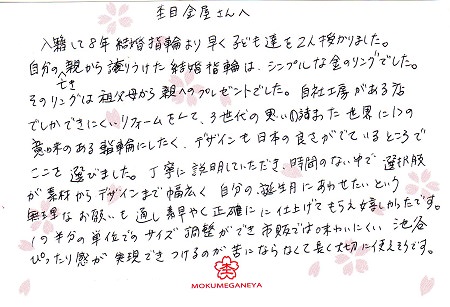 杢目金屋さんへ
入籍して8年 結婚指輪より早く子ども達を2人授かりました。
自分の亡き親から譲りうけた結婚指輪は、シンプルな金のリングでした。
そのリングは祖父母から親へのプレゼントでした。自社工房がある店
でしかできにくいリフォームをして、3世代の思いの詰まった世界に1つの
意味のある指輪にしたく、デザインも日本の良さがでているところで
ここを選びました。丁寧に説明していただき、時間のない中で 選択肢
が素材からデザインまで幅広く 自分の誕生月にあわせたいという
無理なお願いも通し素早く正確にに仕上げてもらえ嬉しかったです。
1つ半分の単位でのサイズ調整ができ市販では味わいにくい
ぴったり感が実現できつけるのが苦にならなくて長く大切に使えそうです。
池谷
MOKUMEGANEYA